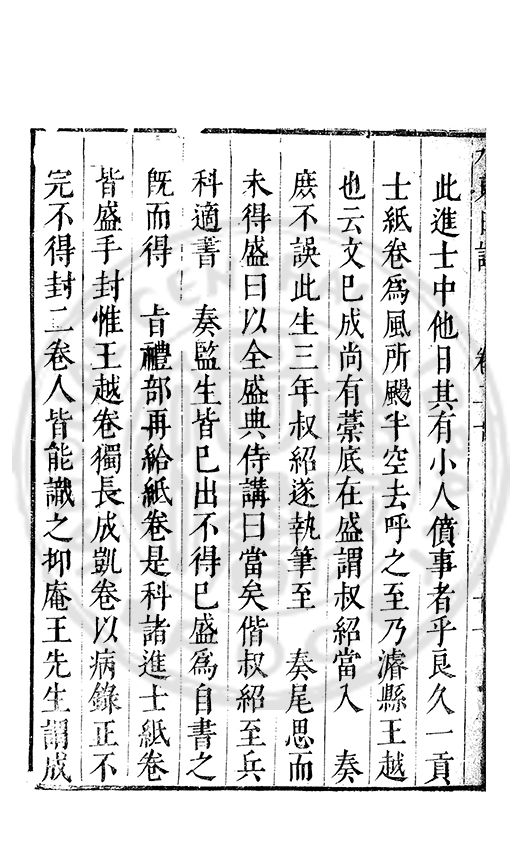 此進士中他日其有小人僨事者乎良久一貢
士紙卷為風所颺半空去呼之至乃濬縣王越
也云文已成尚有藁底在盛謂叔紹當入　奏
庶不誤此生三年叔紹遂執筆至　奏尾思而
未得盛曰以全盛典侍講曰當矣偕叔紹至兵
科適書　奏監生皆已出不得已盛為自書之
既而得　旨禮部再給紙卷是科諸進士紙卷
皆盛手封惟王越卷獨長成凱卷以病錄正不
完不得封二卷人皆能識之抑庵王先生謂成